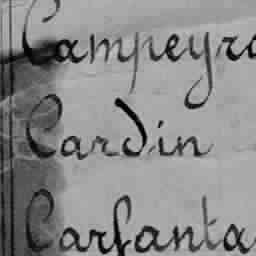 Campeyro
Cardin
Carfanta